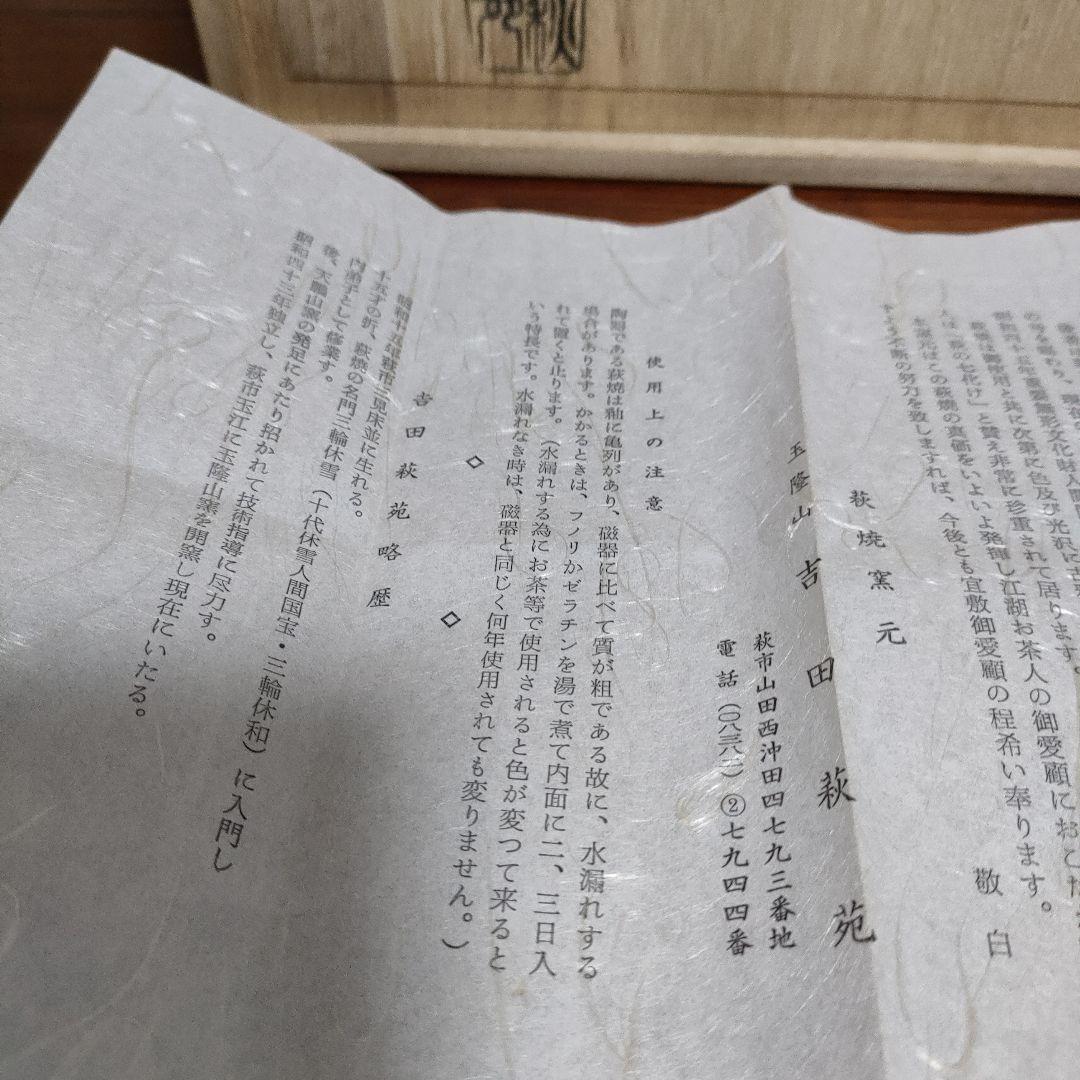 の号を賜わり、
昭和四十五年重要無形文化財人間
萩焼は御使用と共に次第に色及び光沢に
人は「萩の七化け」と賛え非常に珍重されて居ります。
たえざる不断の努力を致しますれば、今後とも宜敷御愛顧の程希い奉ります。
当窯元はこの萩焼の真価をいよいよ発揮し江湖お茶人の御愛顧におこた
敬白
萩焼窯元
玉隆山 吉田萩苑
萩市山田西沖田四七九三番地
電話(〇八三八二)②七九四四番
使用上の注意
陶器である萩焼は釉に亀列があり、磁器に比べて質が粗である故に、水漏れする
場合があります。かかるときは、フノリかゼラチンを湯で煮て内面に二、三日入
れて置くと止ります。(水漏れする為にお茶等で使用されると色が変つて来ると
いう特長です。水漏れなき時は、磁器と同じく何年使用されても変りません。)
◇ ◇
吉田萩苑略歴
昭和十五年萩市三見床並に生れる。
十五才の折、萩焼の名門三輪休雪(十代休雪人間国宝・三輪休和)に入門し
内弟子として修業す。
後、天鵬山窯の発足にあたり招かれて技術指導に尽力す。
昭和四十三年独立し、萩市玉江に玉隆山窯を開窯し現在にいたる。